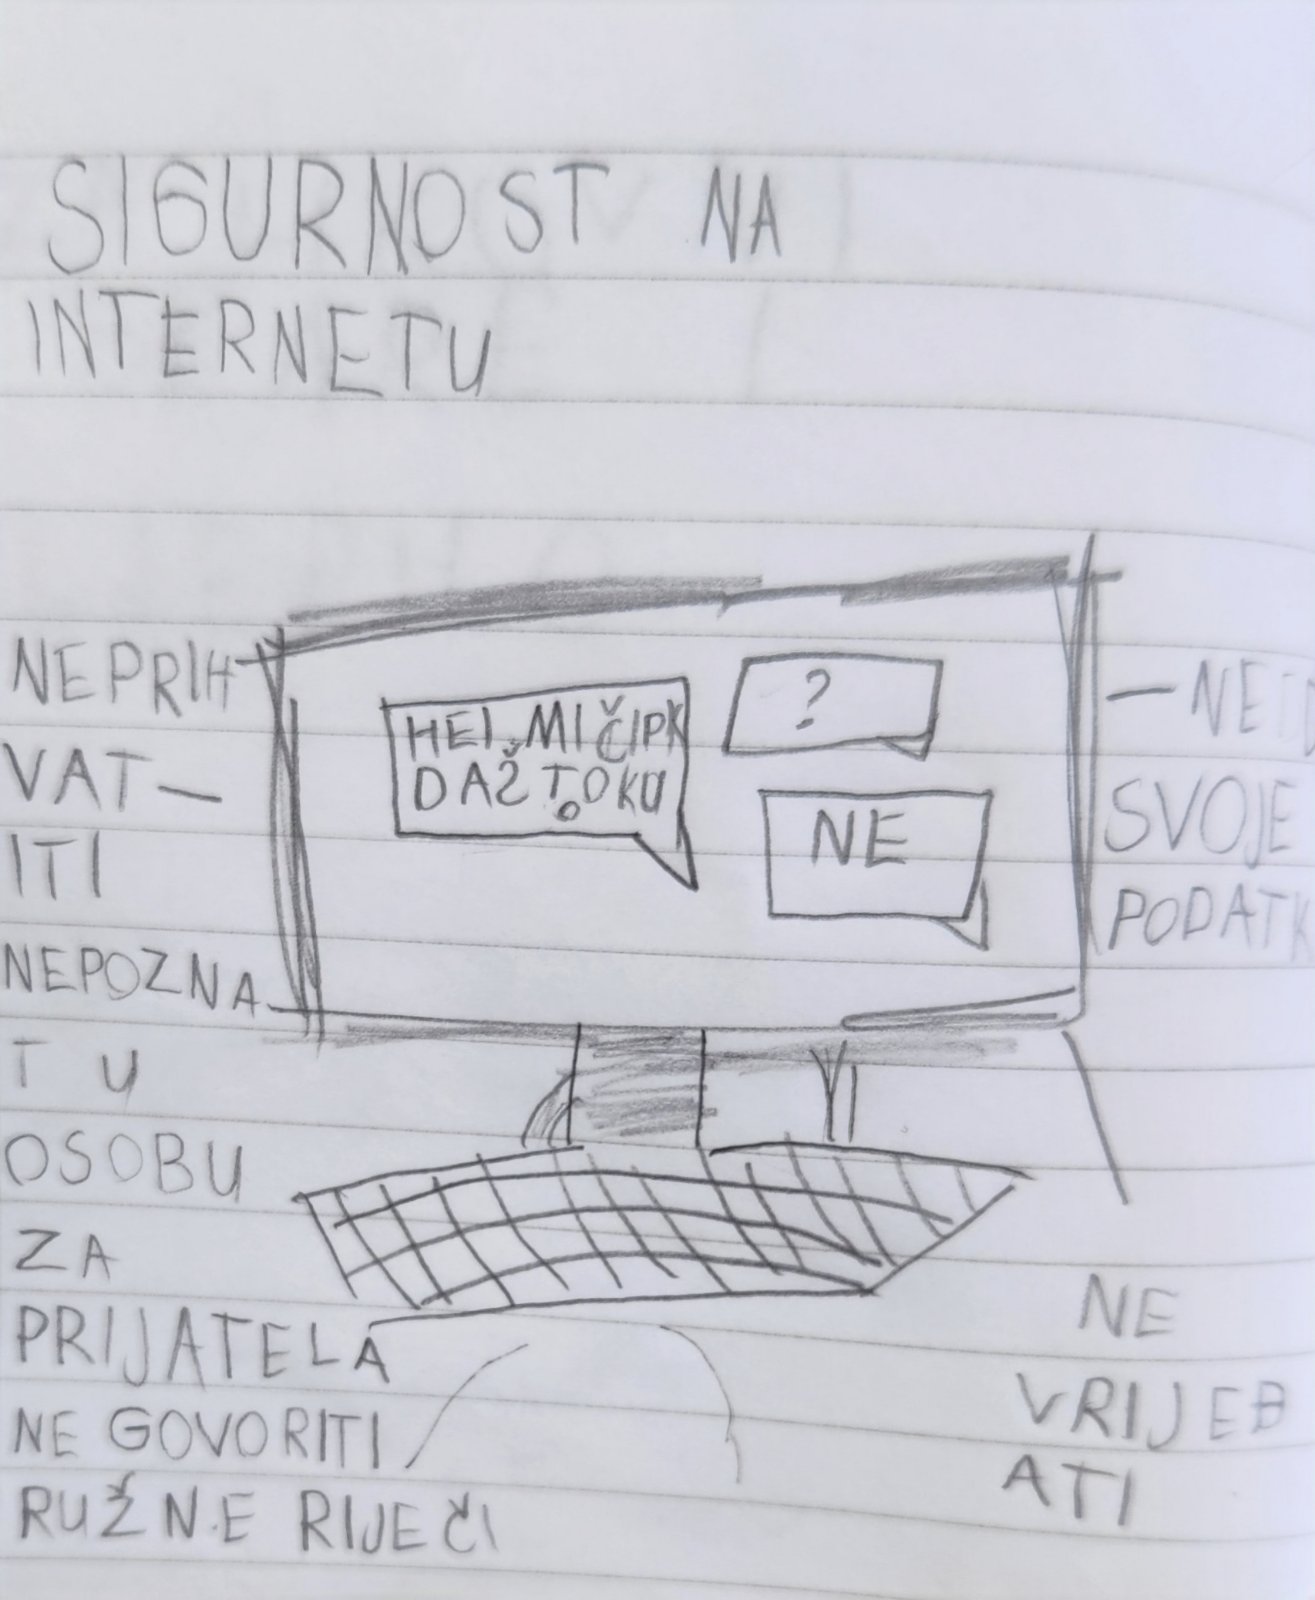 SIGURNOST NA
INTERNETU
NEPRIH-
VAT-
ITI
NEPOZNA
TU
OSOBU
ZA
PRIJATELA
NE GOVORITI
RUŽNE RIJEČI
HEJ, MI ČIPK
DAŽ TOKU
?
NE
SVOJE
PODATK
NE
VRIJEB
ATI